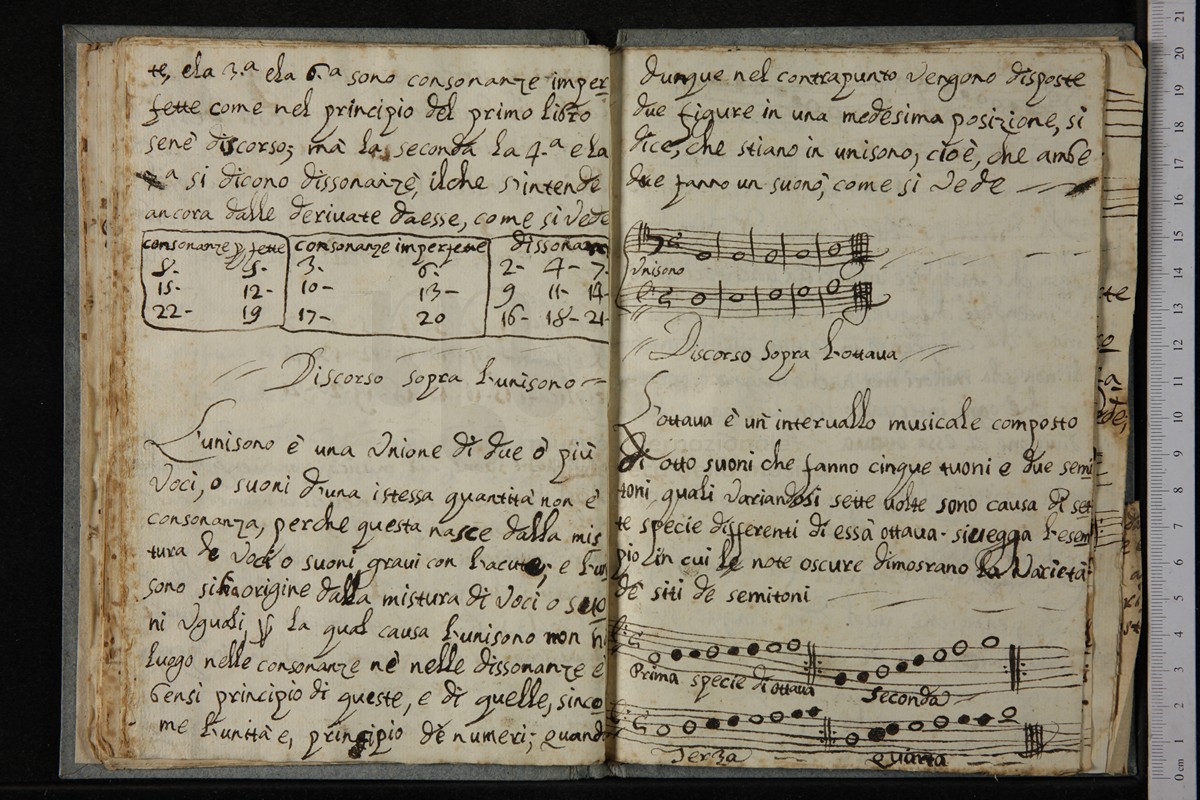 te, e la 3.a e la 6.a sono consonanze imper
fette come nel principio del primo libro
senè discorso; mà la seconda la 4.a e la
7.a si dicono dissonanze, il che s'intende
ancora dalle deriuate da esse, come si Vede
consonanze p fette consonanze imperfette dissonan
8- 5- 3- 6- 2- 4- 7-
15- 12- 10- 13- 9 11- 14-
22- 19 17- 20 16- 18- 21-
Discorso sopra l'unisono
L'unisono è una Vnione di due ò più
Voci, o suoni d'una istessa quantità non è
consonanza, perche questa nasce dalla mis
tura de Voci o suoni graui con l'acute, e l'un
sono si hà origine dalla mistura di Voci o suo
ni Vguali, p la qual causa l'unisono non hà
luogo nelle consonanze nè nelle dissonanze è
bensi principio di queste, e di quelle, sinco
me l'unità e, principio de numeri; quando
dunque nel contrapunto Vengono disposte
due figure in una medesima posizione, si
dice, che stiano in unisono, cioè, che ambe
due fanno un suono, come si Vede
Vnisono
Discorso sopra l'ottaua
L'ottaua è un interuallo musicale composto
di otto suoni che fanno cinque tuoni e due semi
toni, quali Variandosi sette uolte sono causa di set
te specie differenti di essa ottaua- si uegga l'esem
pio in cui le note oscure dimosrano la Varietà
de siti de semitoni
Prima specie di ottaua Seconda
Terza quarta